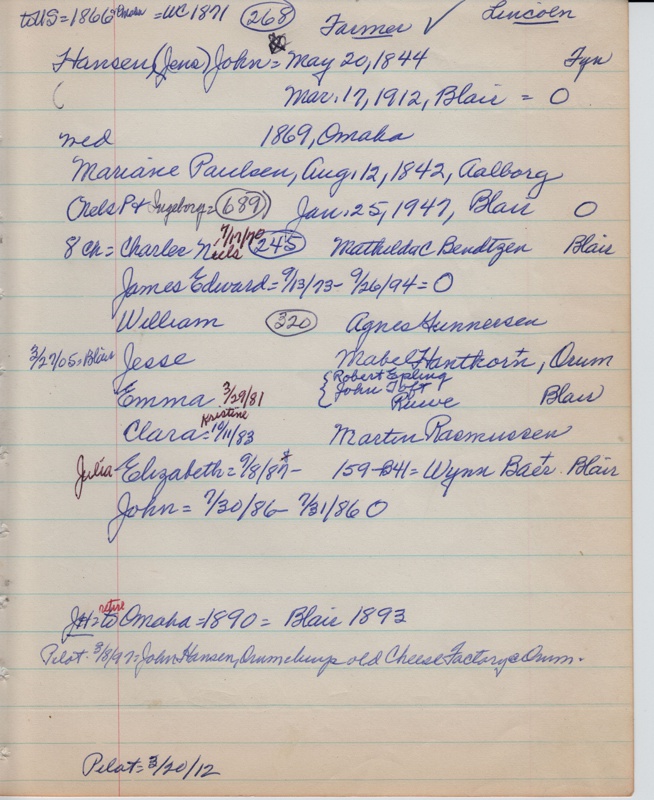 to US = 1866 Omaha = WC 1871 (268) Farmer ✓ Lincoln
Hansen (Jens) John = May 20, 1844 Fyn
Mar. 17, 1912, Blair = O
wed 1869, Omaha
Mariane Paulsen, Aug. 12, 1842, Aalborg
Ingeborg = (689) Jan. 25, 1947, Blair O
8 ch = Charles Niels 7/17/70 (245) Mathilda C Bendtzen Blair
James Edward = 9/13/73 - 9/26/94 = O
William (320) Agnes Gunnersen
3/27/05 = Blair Jesse Mabel Hanthorn, Orum
Robert Epling
Emma 3/29/81 { John Toft Blair
Ruwe
Clara Kristine = 10/11/83 Martin Rasmussen
Julia Elizabeth = 9/8/87 - 159-B41 = Wynn Baer. Blair
John = 7/30/86 - 7/31/86 O
JH = retire to Omaha = 1890 = Blair 1893
Pilot = 3/8/97 = John Hansen, Orum buys old Cheese Factory @ Orum.
Pilot = 3/20/12